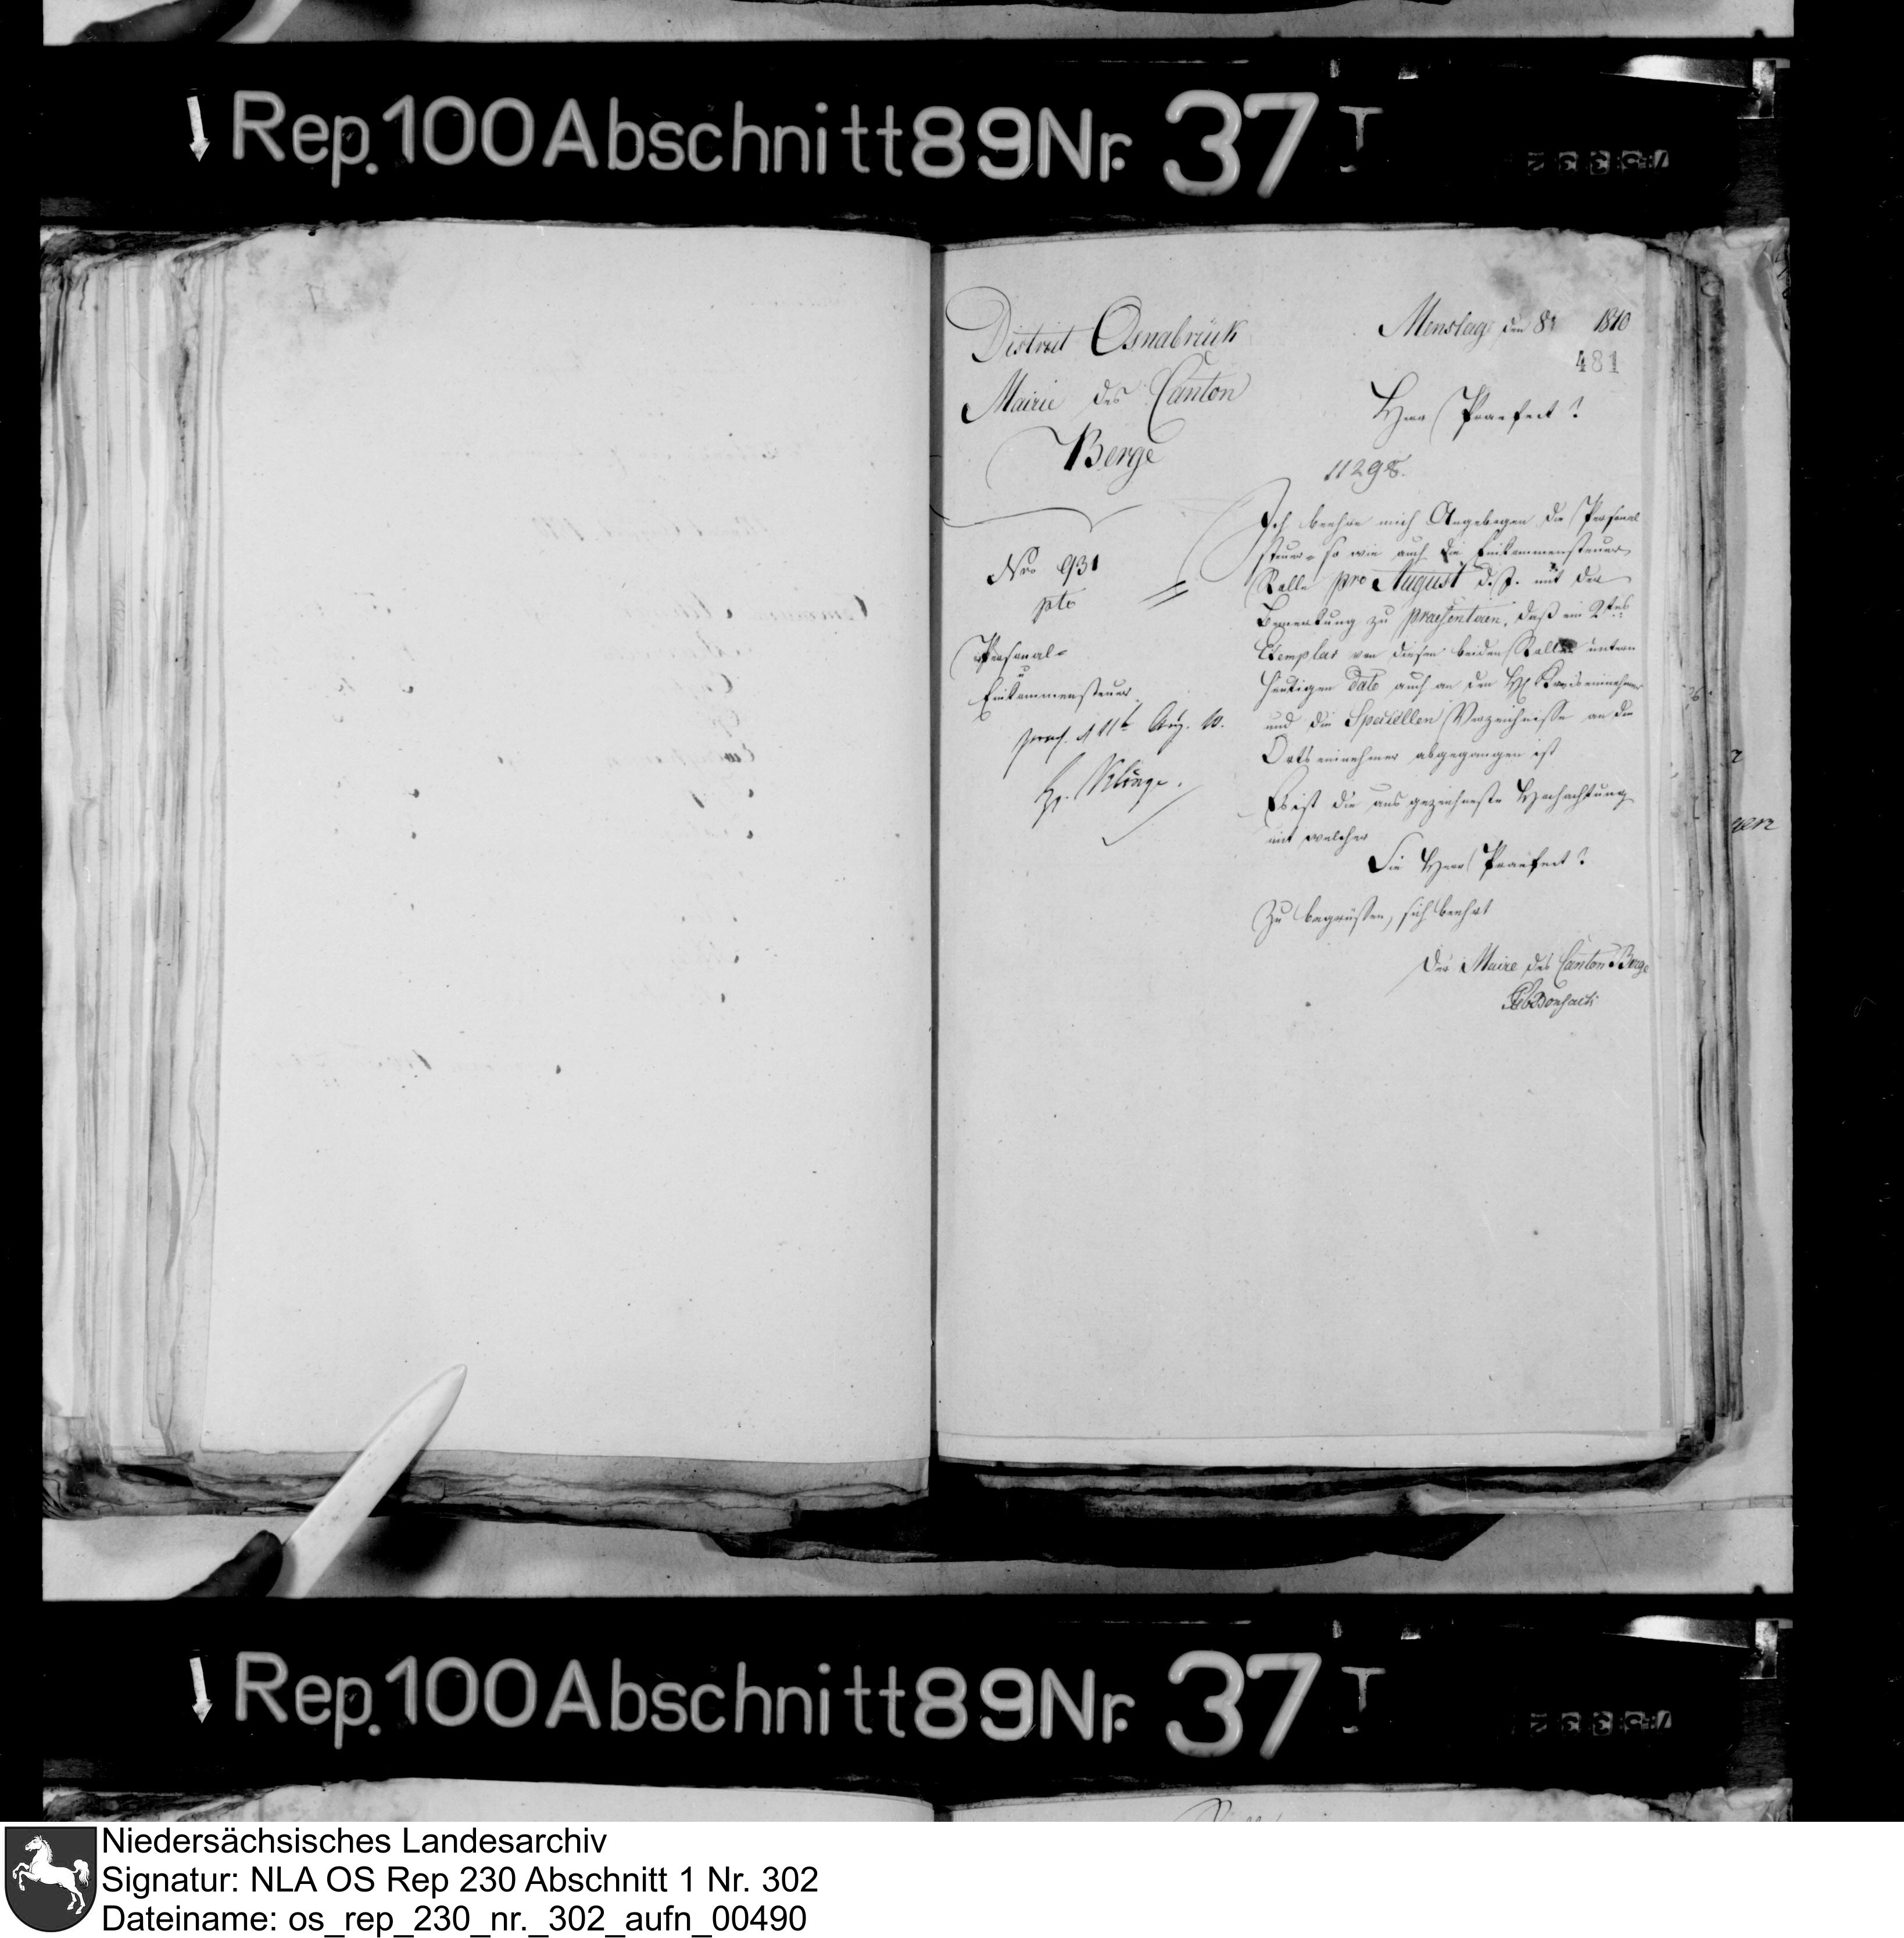 Rep. 100 Abschnitt 89 Nr. 37 I
District Osnabrück
Mairie des Canton
Berge
Nro 931
pto
Personal-
u
Einkommensteuer.
praes. d 11t Aug. 10.
Menslage den 8t 1810
481
Herr Praefect!
11298.
Ich beehre mich Angebogen die Personal
steuer- so wie auch die Einkommensteuer
Rolle pro August d. J. mit der
Bemerkung zu praesentiren, daß ein 2tes
Exemplar von diesen beiden Rollen unterm
heutigen Dato auch an den H. Kreiseinnehmer
und die Speciellen Verzeichnisse an die
Ortseinnehmer abgegangen ist
Es ist die ausgezeichneste Hochachtung
mit welcher
Sie Herr Praefect!
Zu begrüssen, sich beehrt
Der Maire des Canton Berge
Rep. 100 Abschnitt 89 Nr. 37 I
Niedersächsisches Landesarchiv
Signatur: NLA OS Rep 230 Abschnitt 1 Nr. 302
Dateiname: os_rep_230_nr._302_aufn_00490